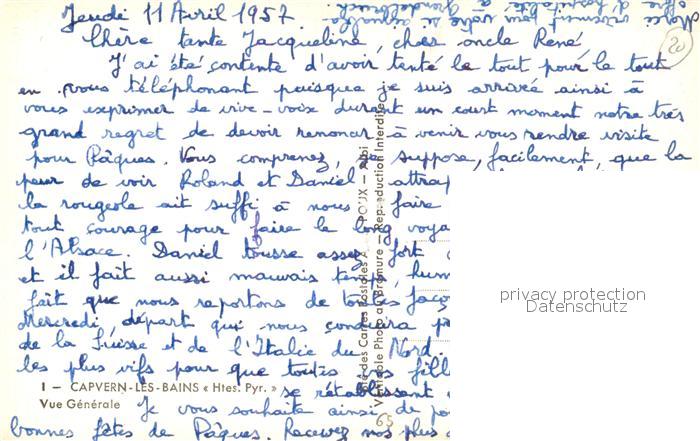 Jeudi 11 Avril 1957
Chère tante Jacqueline, cher oncle René,
J'ai été contente d'avoir tenté le tout pour le tout
en vous téléphonant puisque je suis arrivée ainsi à
vous exprimer de vive-voix durant un court moment notre très
grand regret de devoir renoncer à venir vous rendre visite
pour Pâques. Vous comprenez, je suppose, facilement, que la
peur de voir Roland et Daniel attrap
la rougeole ait suffi à nous faire
tout courage pour faire le long voya
l'Alsace. Daniel tousse assez fort
et il fait aussi mauvais temps, hum
fait que nous reportons de toutes faço
Mercredi, départ qui nous conduira p
de la Suisse et de l'Italie du Nord.
les plus vifs pour que toutes vos fill
se rétablissent
Je vous souhaite ainsi de pa
bonnes fêtes de Pâques. Recevez nos plus
Merci vivement pour votre si
offre d'hospitalité à
20
1 — CAPVERN-LES-BAINS « Htes. Pyr. »
Vue Générale
des Cartes Postales A. POUX - Albi
Véritable Photo au Bromure — Reproduction Interdite
65
privacy protection
Datenschutz